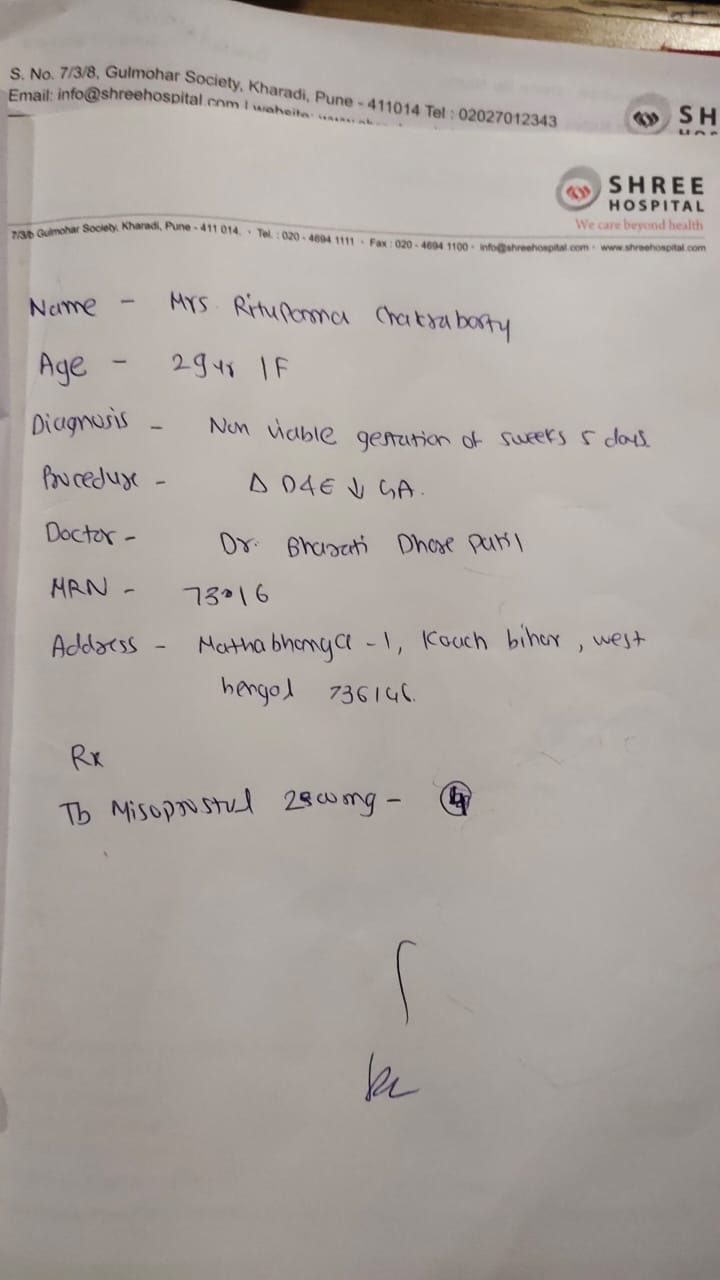 S. No. 7/3/8, Gulmohar Society, Kharadi, Pune - 411014 Tel : 02027012343
Email: info@shreehospital.com | website:
SH
SHREE
HOSPITAL
We care beyond health
7/3/b Gulmohar Society, Kharadi, Pune - 411 014. • Tel. : 020 - 4694 1111 • Fax : 020 - 4694 1100 • info@shreehospital.com • www.shreehospital.com
Name - Mrs. Rituparna Chakraborty
Age - 29 yr / F
Diagnosis - Non viable gestation of 5weeks 5 days.
Procedure - Δ D&E ↓ GA.
Doctor - Dr. Bharati Dhore Patil
MRN - 73016
Address - Mathabhanga - 1, Kouch bihar, west
bengal 736146.
Rx
Tb Misoprostol mg -